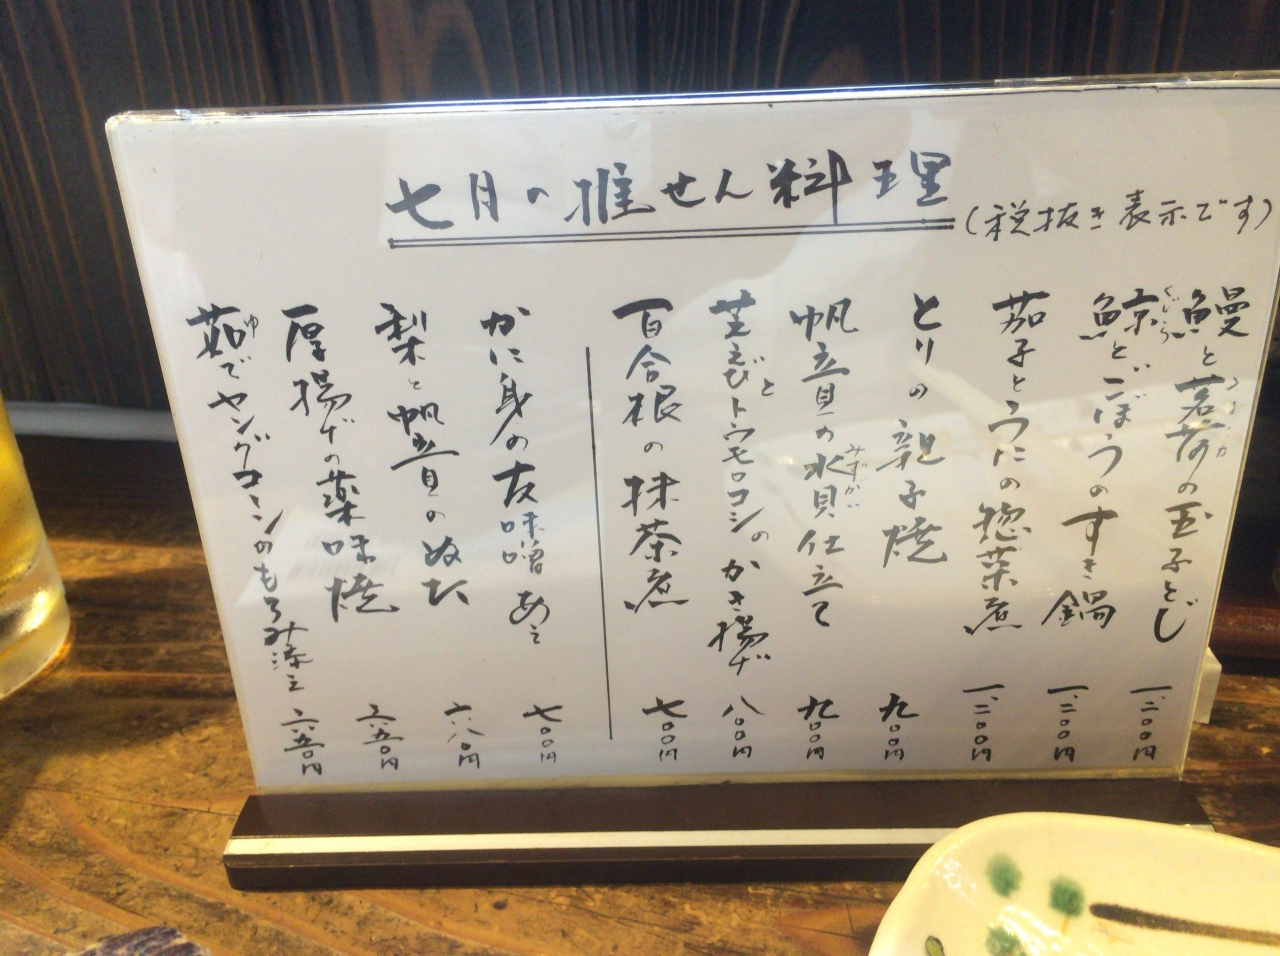 七月の推せん料理
(税抜き表示です)
鰻と茗荷の玉子とじ
一、二〇〇円
鯨とごぼうのすき鍋
くじら
一、二〇〇円
茄子とうにの惣菜煮
一、二〇〇円
とりの親子焼
九〇〇円
帆立貝の水貝仕立て
みずがい
九〇〇円
芝えびとトウモロコシのかき揚げ
八〇〇円
百合根の抹茶煮
七〇〇円
かに身の友味噌あえ
七〇〇円
梨と帆立貝のぬた
六八〇円
厚揚げの薬味焼
六五〇円
茹でヤングコーンのもろみ添え
ゆ
六五〇円